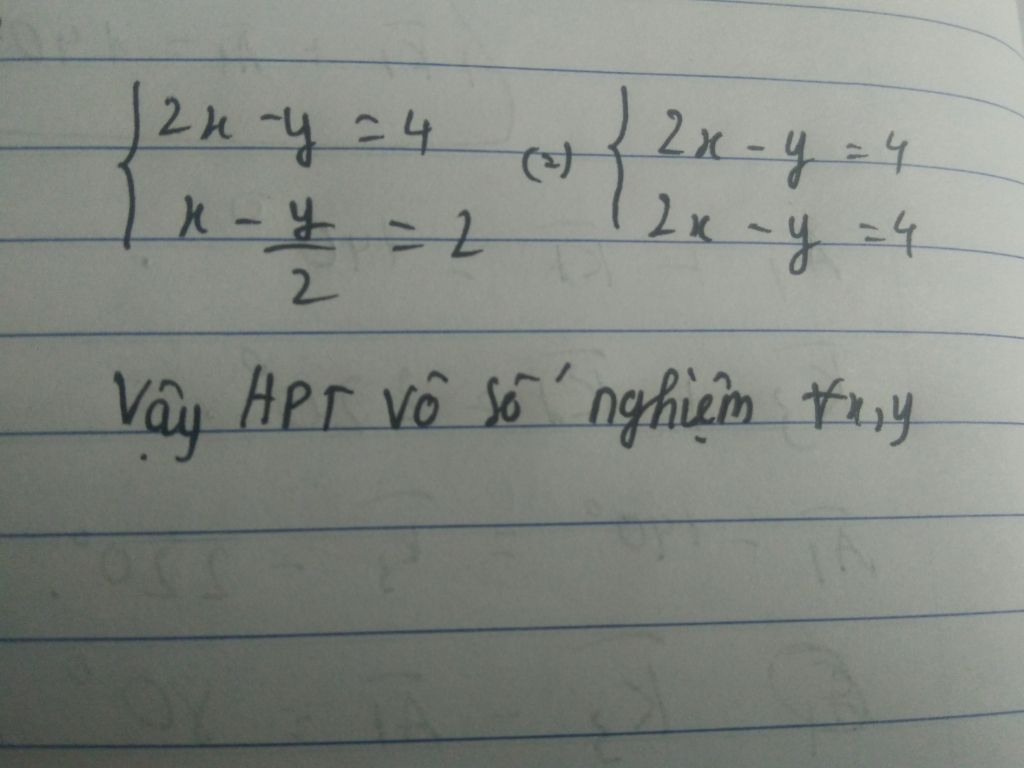 { 2x - y = 4 (2) { 2x - y = 4
x - y/2 = 2 2x - y = 4
Vậy HPT vô số nghiệm ∀x,y